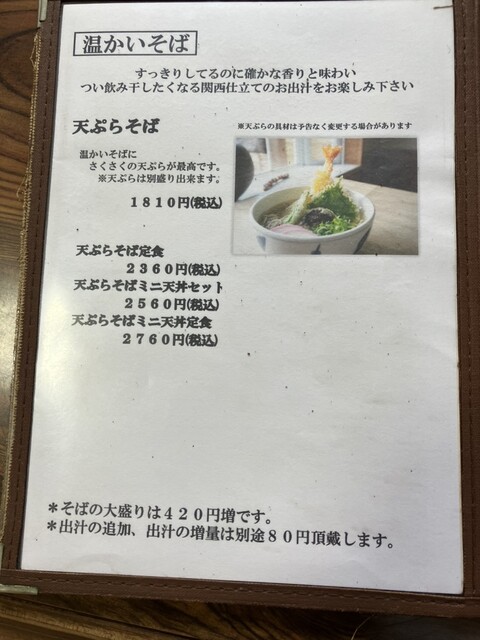 温かいそば
すっきりしてるのに確かな香りと味わい
つい飲み干したくなる関西仕立てのお出汁をお楽しみ下さい
天ぷらそば
※天ぷらの具材は予告なく変更する場合があります
温かいそばに
さくさくの天ぷらが最高です。
※天ぷらは別盛り出来ます。
1810円(税込)
天ぷらそば定食
2360円(税込)
天ぷらそばミニ天丼セット
2560円(税込)
天ぷらそばミニ天丼定食
2760円(税込)
＊そばの大盛りは420円増です。
＊出汁の追加、出汁の増量は別途80円頂戴します。